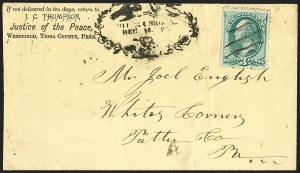 If not delivered in ten days, return to
J. C. THOMPSON,
Justice of the Peace,
WESTFIELD, TIOGA COUNTY, PENN.
DEC 16
Mr Joel English
Whites Corners
Potter Co
Pa